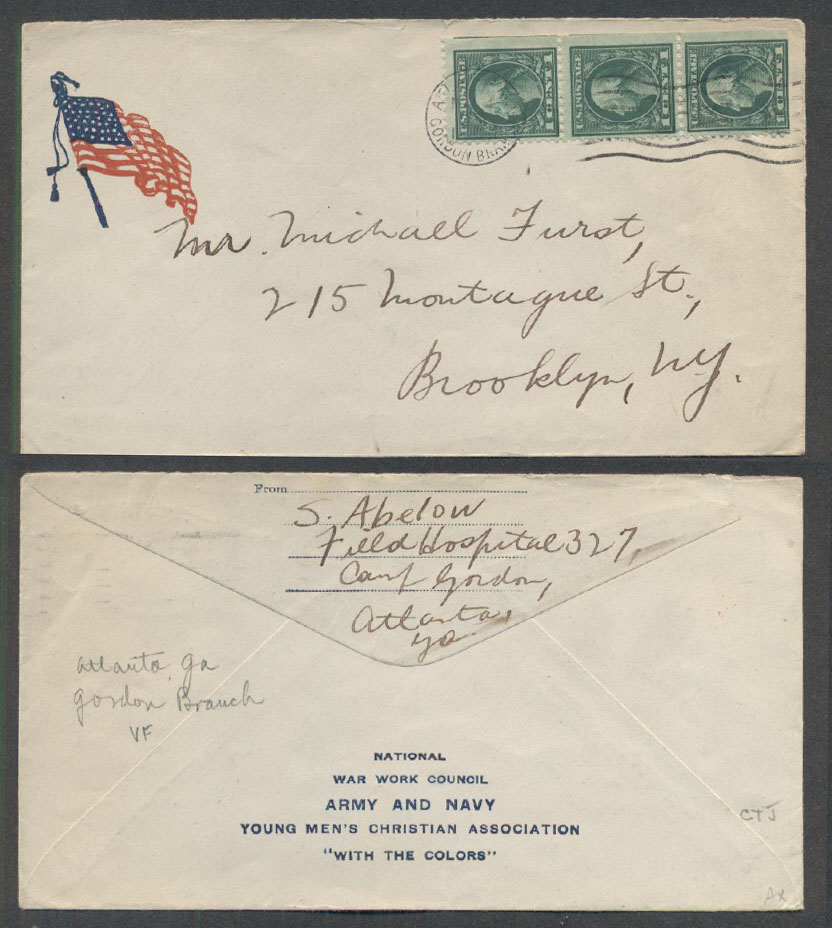 U.S. POSTAGE
1 CENT 1
U.S. POSTAGE
1 CENT 1
U.S. POSTAGE
1 CENT 1
GORDON BRAN
Mr. Michael Furst,
215 Montague St.,
Brooklyn, NY.
From
S. Abelow
Field Hospital 327,
Camp Gordon,
Atlanta,
Ga
Atlanta, Ga
Gordon Branch
VF
NATIONAL
WAR WORK COUNCIL
ARMY AND NAVY
YOUNG MEN'S CHRISTIAN ASSOCIATION
"WITH THE COLORS"
CTJ
AX